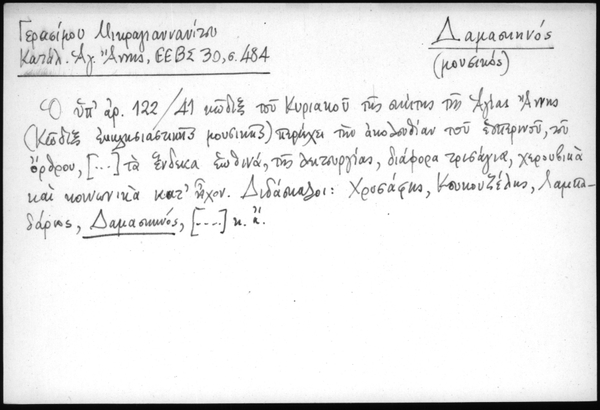 Γερασίμου Μικραγιαννανίτου
Κατάλ. Ἁγ. Ἄννης, ΕΕΒΣ 30, σ. 484
Δαμασκηνός
(μουσικός)
Ὁ ὑπ' ἀρ. 122/41 κῶδιξ τοῦ Κυριακοῦ τῆς σκήτης τῆς Ἁγίας Ἄννης
(Κῶδιξ ἐκκλησιαστικῆς μουσικῆς) περιέχει τὴν ἀκολουθίαν τοῦ ἑσπερινοῦ, τοῦ
ὄρθρου, [...] τὰ ἕνδεκα ἑωθινά, τῆς λειτουργίας, διάφορα τρισάγια, χερουβικὰ
καὶ κοινωνικὰ κατ' ἦχον. Διδάσκαλοι: Χρυσάφης, Κουκουζέλης, Λαμπα-
δάριος, Δαμασκηνός, [....] κ. ἄ.